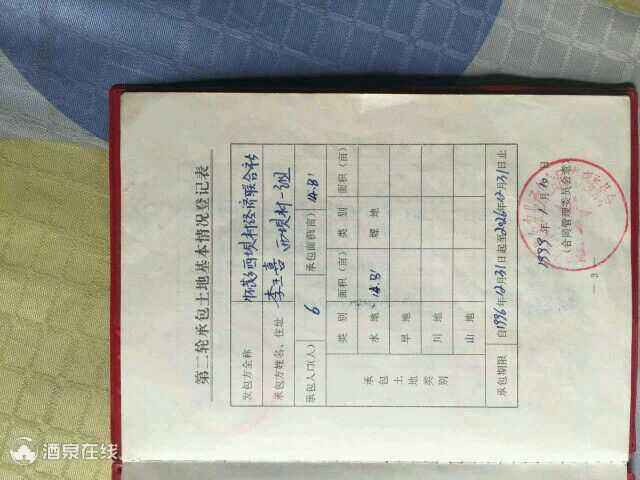 第二轮承包土地基本情况登记表
发包方全称 西坝村经济联合社
承包方姓名、住址 李玉喜 西坝村一组
承包人口(人) 6 承包面积(亩) 14.81
承包土地类别 类别 面积(亩) 类别 面积(亩)
水地 14.81 煤地
旱地
川地
山地
承包期限 自1996年12月31日起至2026年12月31日止
1999年1月10日
(合同管理委员会章)
— 3 —
酒泉在线